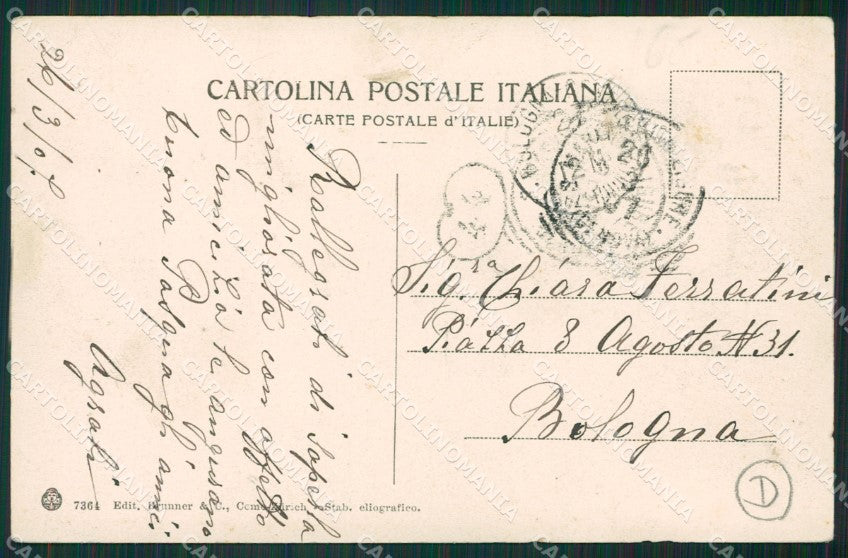 CARTOLINA POSTALE ITALIANA
(CARTE POSTALE d'ITALIE)
26/3/07
Rallegrati di saperla
migliorata con affetto
ed amicizia le auguriamo
buona Pasqua gli amici
Agrati
Sig.ra Chiara Ferratini
Piazza 8 Agosto N 31.
Bologna
D
7364 Edit. Brunner & C., Como-Zürich Stab. eliografico.
CARTOLINOMANIA